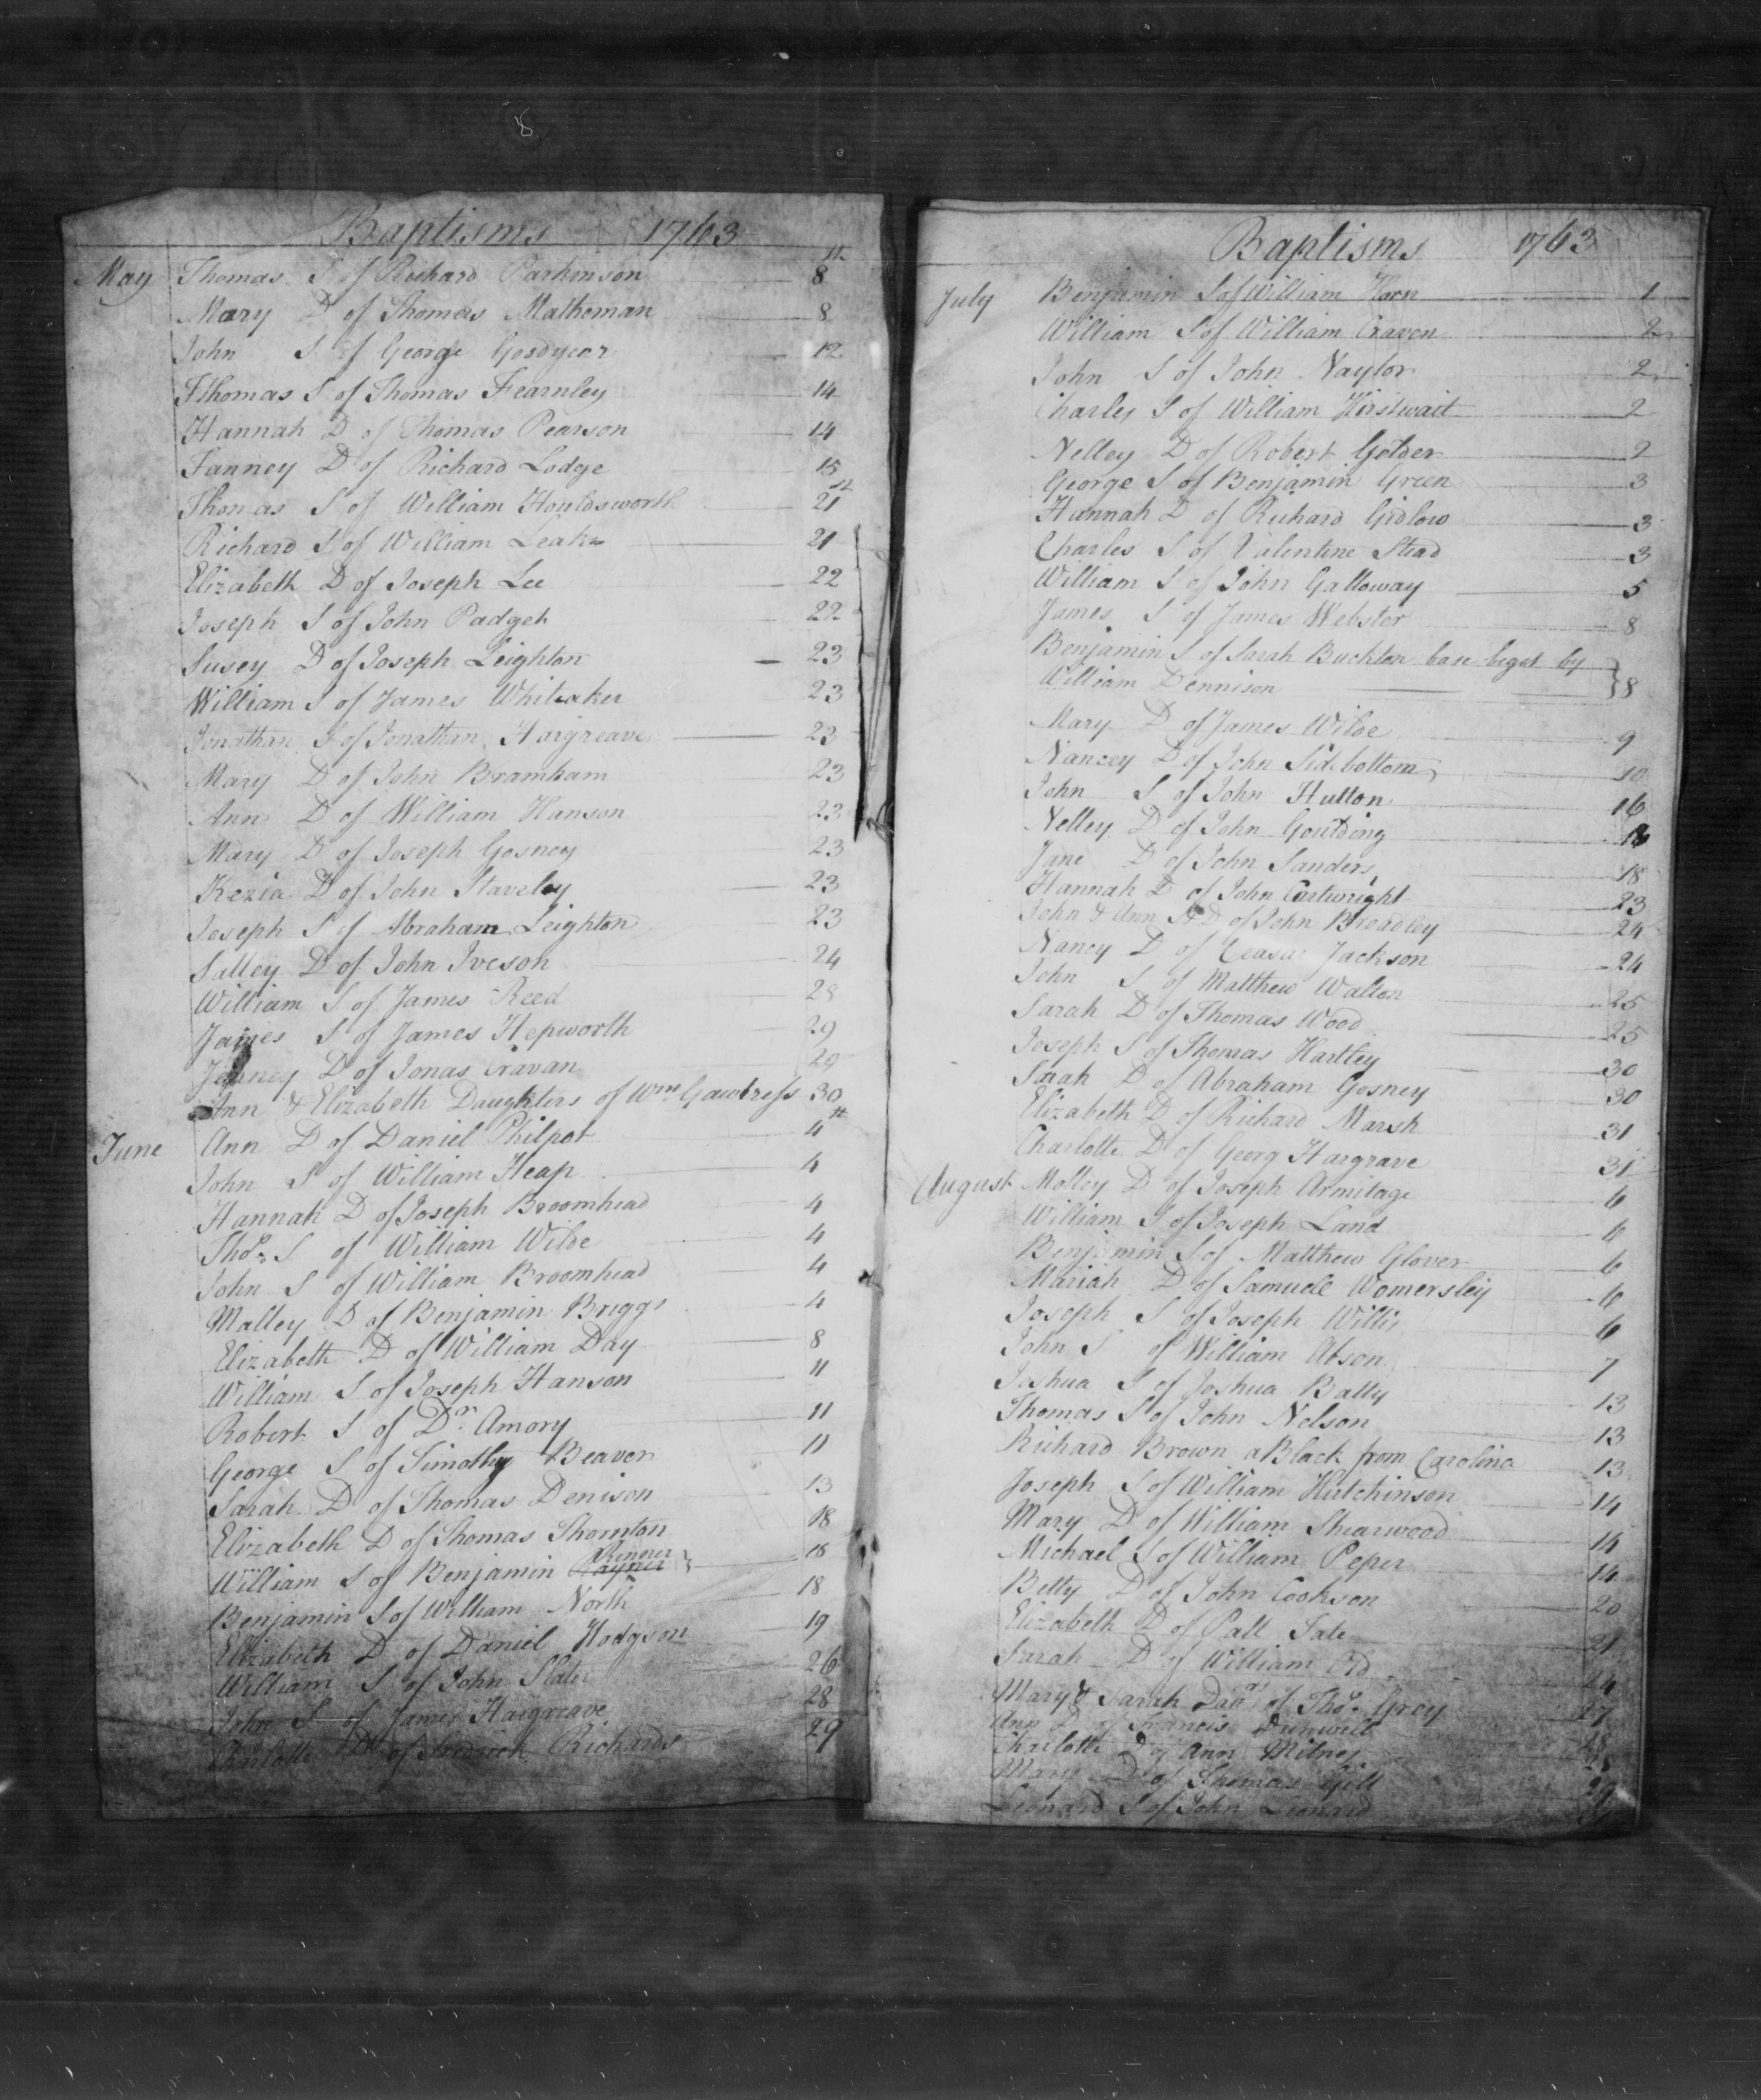 8
Baptisms 1763
May Thomas S of Richard Parkinson 8th
Mary D of Thomas Matheman 8
John S of George Goodyear 12
Thomas S of Thomas Fearnley 14
Hannah D of Thomas Pearson 14
Fanney D of Richard Lodge 15
Thomas S of William Houldsworth 21st
Richard S of William Leake 21
Elizabeth D of Joseph Lee 22
Joseph S of John Padget 22
Susey D of Joseph Leighton 23
William S of James Whitaker 23
Jonathan S of Jonathan Hargreave 23
Mary D of John Bramham 23
Ann D of William Hanson 23
Mary D of Joseph Gosney 23
Kezia D of John Staveley 23
Joseph S of Abraham Leighton 23
Salley D of John Iveson 24
William S of James Reed 28
James S of James Hepworth 29
Jenney D of Jonas Cravan 29
Ann & Elizabeth Daughters of Wm Gawtress 30
June Ann D of Daniel Philpot 4th
John S of William Heap 4
Hannah D of Joseph Broomhead 4
Thos S of William Wilde 4
John S of William Broomhead 4
Malley D of Benjamin Briggs 4
Elizabeth D of William Day 8
William S of Joseph Hanson 11
Robert S of Dr Amory 11
George S of Timothy Beaver 11
Sarah D of Thomas Denison 13
Elizabeth D of Thomas Thornton 18
William S of Benjamin Rayner 18
Benjamin S of William North 18
Elizabeth D of Daniel Hodgson 19
William S of John Slater 26
John S of James Hargreave 28
Charlotte D of Richards 29
Baptisms 1763
July Benjamin S of William Horn 1
William S of William Craven 2
John S of John Naylor 2
Charles S of William Hirstwait 2
Nelley D of Robert Golder 2
George S of Benjamin Green 3
Hannah D of Richard Gidlow 3
Charles S of Valentine Stead 3
William S of John Galloway 5
James S of James Webster 8
Benjamin S of Sarah Buckton base begot by
William Dennison } 8
Mary D of James Wilde 9
Nancey D of John Sidebottom 10
John S of John Hutton 16
Nelley D of John Goulding 18
Jane D of John Sanders 18
Hannah D of John Cartwright 23
John & Ann S & D of John Broadley 24
Nancy D of Ceasar Jackson 24
John S of Matthew Walton 25
Sarah D of Thomas Wood 25
Joseph S of Thomas Hartley 30
Sarah D of Abraham Gosney 30
Elizabeth D of Richard Marsh 31
Charlotte D of Georg Hargrave 31
August Molley D of Joseph Armitage 6
William S of Joseph Land 6
Benjamin S of Matthew Glover 6
Mariah D of Samuell Womersley 6
Joseph S of Joseph Willis 6
John S of William Abson 7
Joshua S of Joshua Batty 13
Thomas S of John Nelson 13
Richard Brown a Black from Carolina 13
Joseph S of William Hutchinson 14
Mary D of William Shearwood 14
Michael S of William Peper 14
Betty D of John Cookson 20
Elizabeth D of Pall Sale 21
Sarah D of William Old 24
Mary & Sarah Daurs of Thos Grey 27
Ann D of Francis Dunwell 28
Charlotte D of Ann Milnes 28
Mary D of Thomas Gill 29
Leonard S of John Leonard